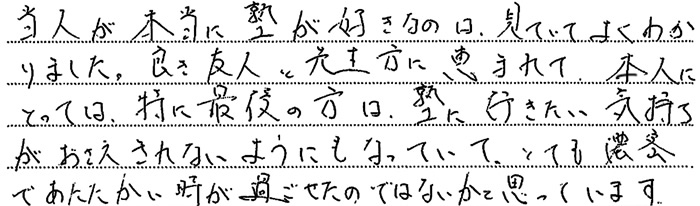 当人が本当に塾が好きなのは、見ていてよくわか
りました。良き友人と先生方に恵まれて、本人に
とっては、特に最後の方は、塾に行きたい気持ち
がおさえきれないようにもなっていて、とても濃密
であたたかい時が過ごせたのではないかと思っています。